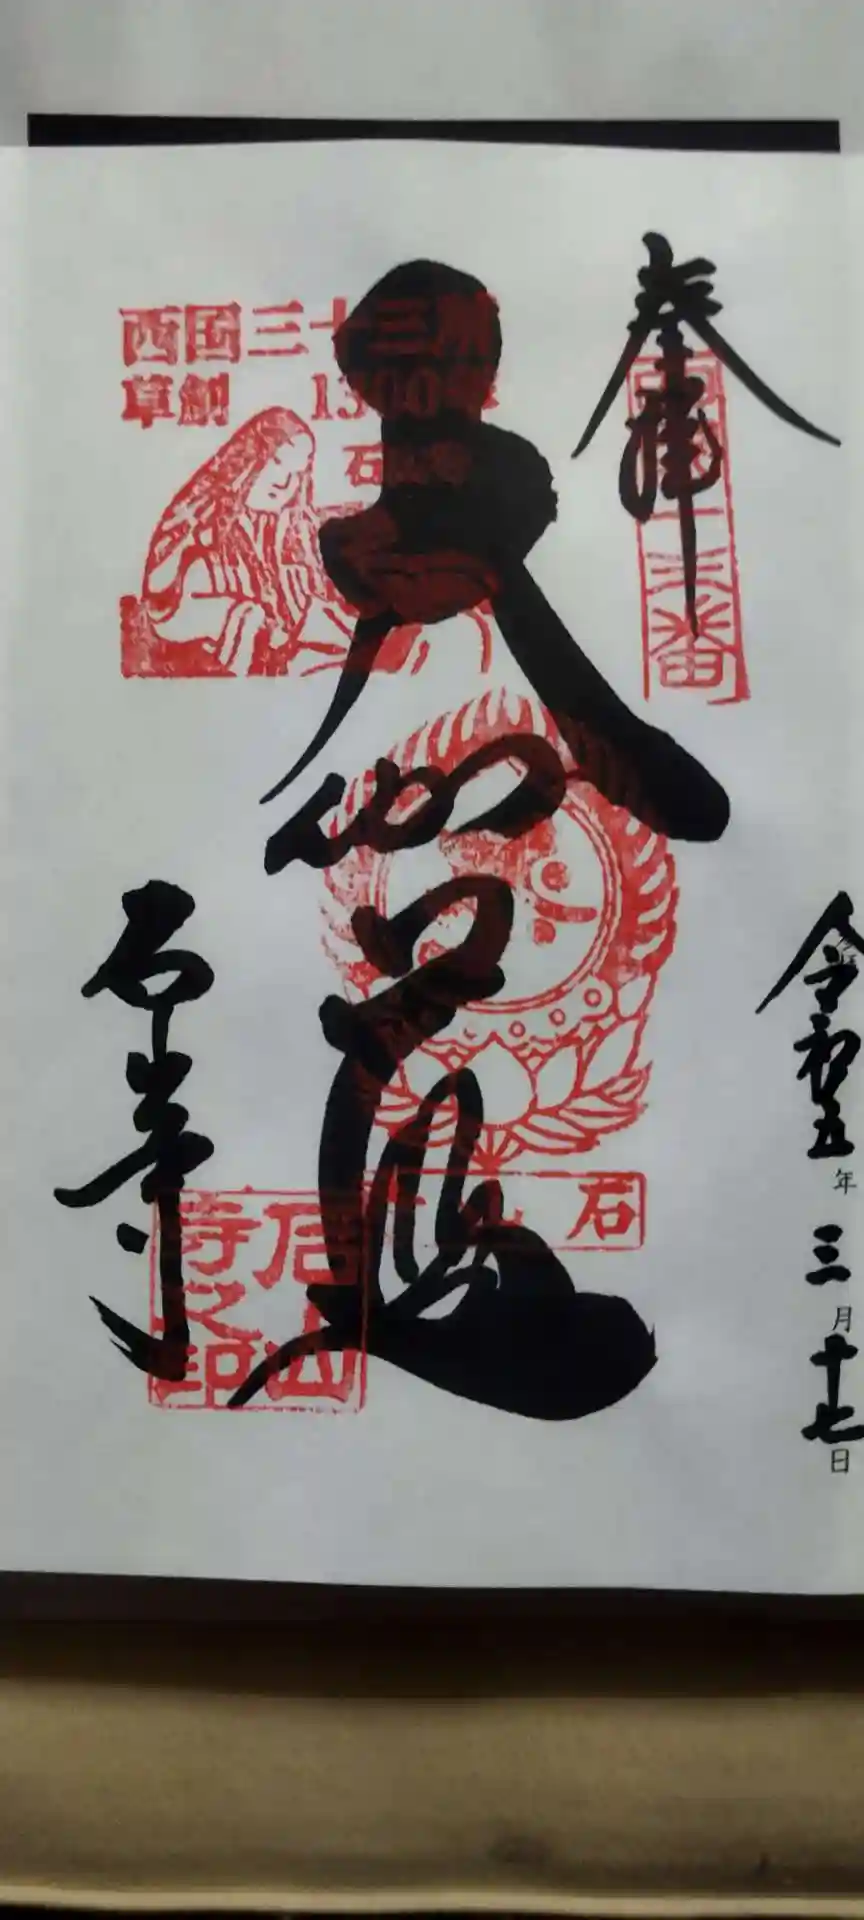 奉拝
西国十三番
令和五年三月十七日
大伽藍
西国三十三所
草創 1300年
石山寺
石山寺
石山寺之印